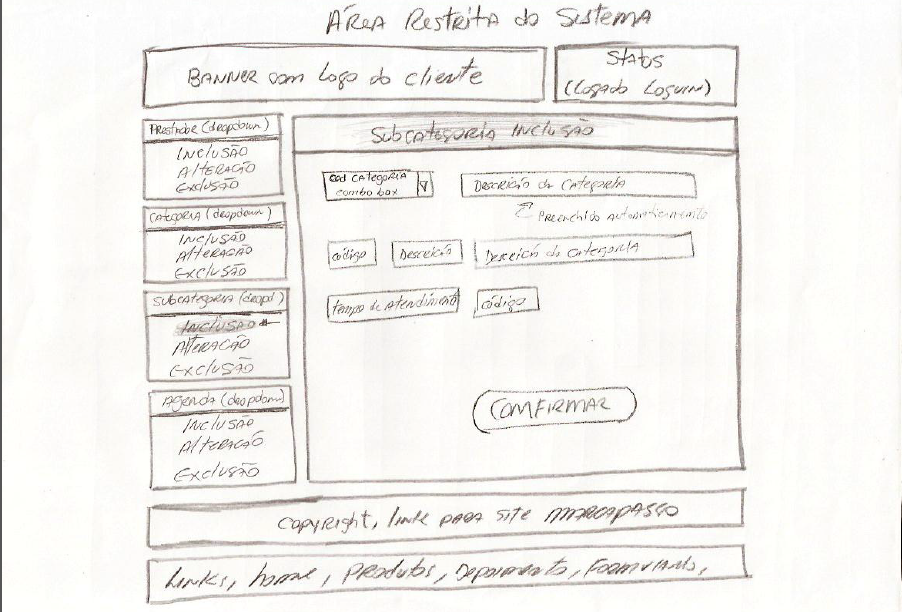 ÁREA RESTRITA do SISTEMA
BANNER com Logo do cliente
STATUS
(Logado Loguin)
(dropdown)
INCLUSÃO
ALTERAÇÃO
EXCLUSÃO
CATEGORIA (dropdown)
INCLUSÃO
ALTERAÇÃO
EXCLUSÃO
SUBCATEGORIA (dropd)
INCLUSÃO
ALTERAÇÃO
EXCLUSÃO
AGENDA (dropdown)
INCLUSÃO
ALTERAÇÃO
EXCLUSÃO
SUBCATEGORIA INCLUSÃO
Cod CATEGORIA
combo box
DESCRICÃO da CATEGORIA
PREENCHIDO AUTOMATICAMENTE
código
DESCRICÃO
DESCRICÃO da CATEGORIA
tempo de Atendimento
código
COMFIRMAR
Copyright, link PARA site MARCAPASSO
Links, home, PRODUTOS, Depoimento,